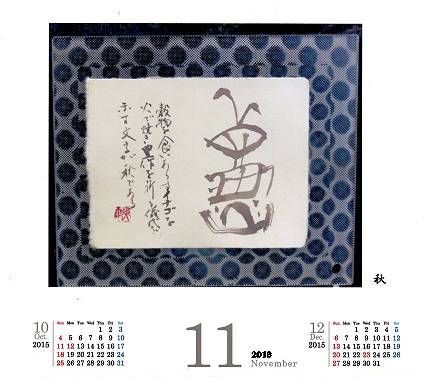 穀物を食いあらすイナゴを
火で焼き豊作を祈る儀式を
示す文字が秋である
秋
10
Oct.
2015
Sun Mon Tue Wed Thu Fri Sat
1 2 3
4 5 6 7 8 9 10
11 12 13 14 15 16 17
18 19 20 21 22 23 24
25 26 27 28 29 30 31
11
November
12
Dec.
2015
Sun Mon Tue Wed Thu Fri Sat
1 2 3 4 5
6 7 8 9 10 11 12
13 14 15 16 17 18 19
20 21 22 23 24 25 26
27 28 29 30 31